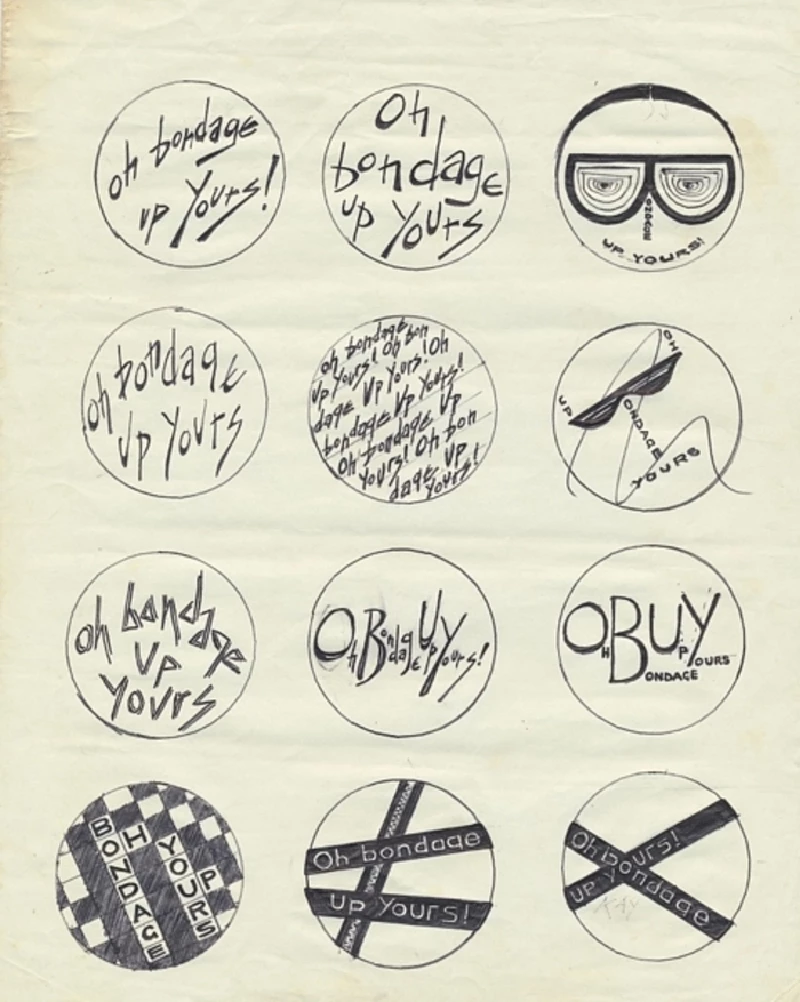 oh bondage
up Yours!
Oh
bondage
up Yours
ONDAGE
UP YOURS!
oh bondage
up Yours
oh bondage
up Yours! Oh bon
dage Up Yours! Oh
bondage Up Yours!
Oh bondage Up
Yours! Oh bon
dage up
yours!
OH
UP
ONDAGE
YOURS
oh bondage
up
Yours
Oh Bondage Up Yours!
OH BONDAGE UP YOURS
BONDAGE
H
YOURS
P
Oh bondage
up Yours!
Oh bondage
up Yours!